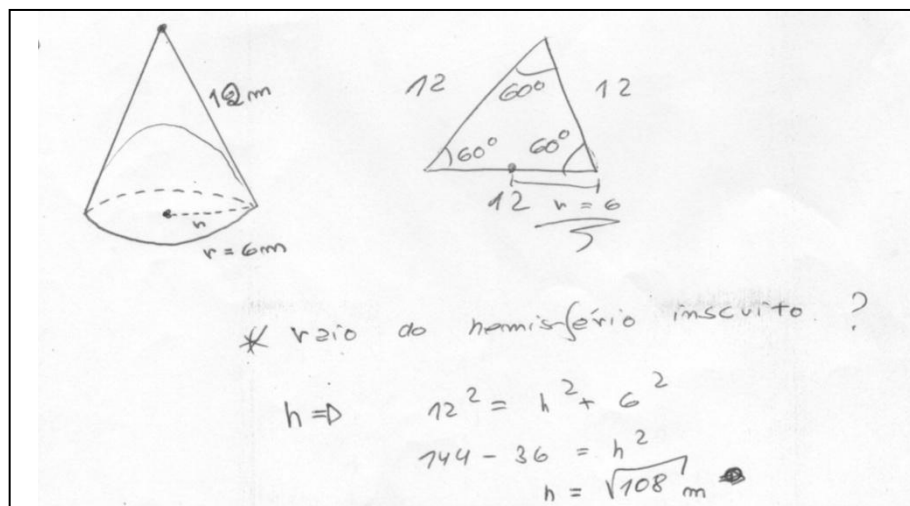 12 m
r
r = 6m
12
12
60°
60°
60°
12
r = 6
* raio do hemisfério inscrito ?
h ⇒ 12² = h² + 6²
144 - 36 = h²
h = √108 m